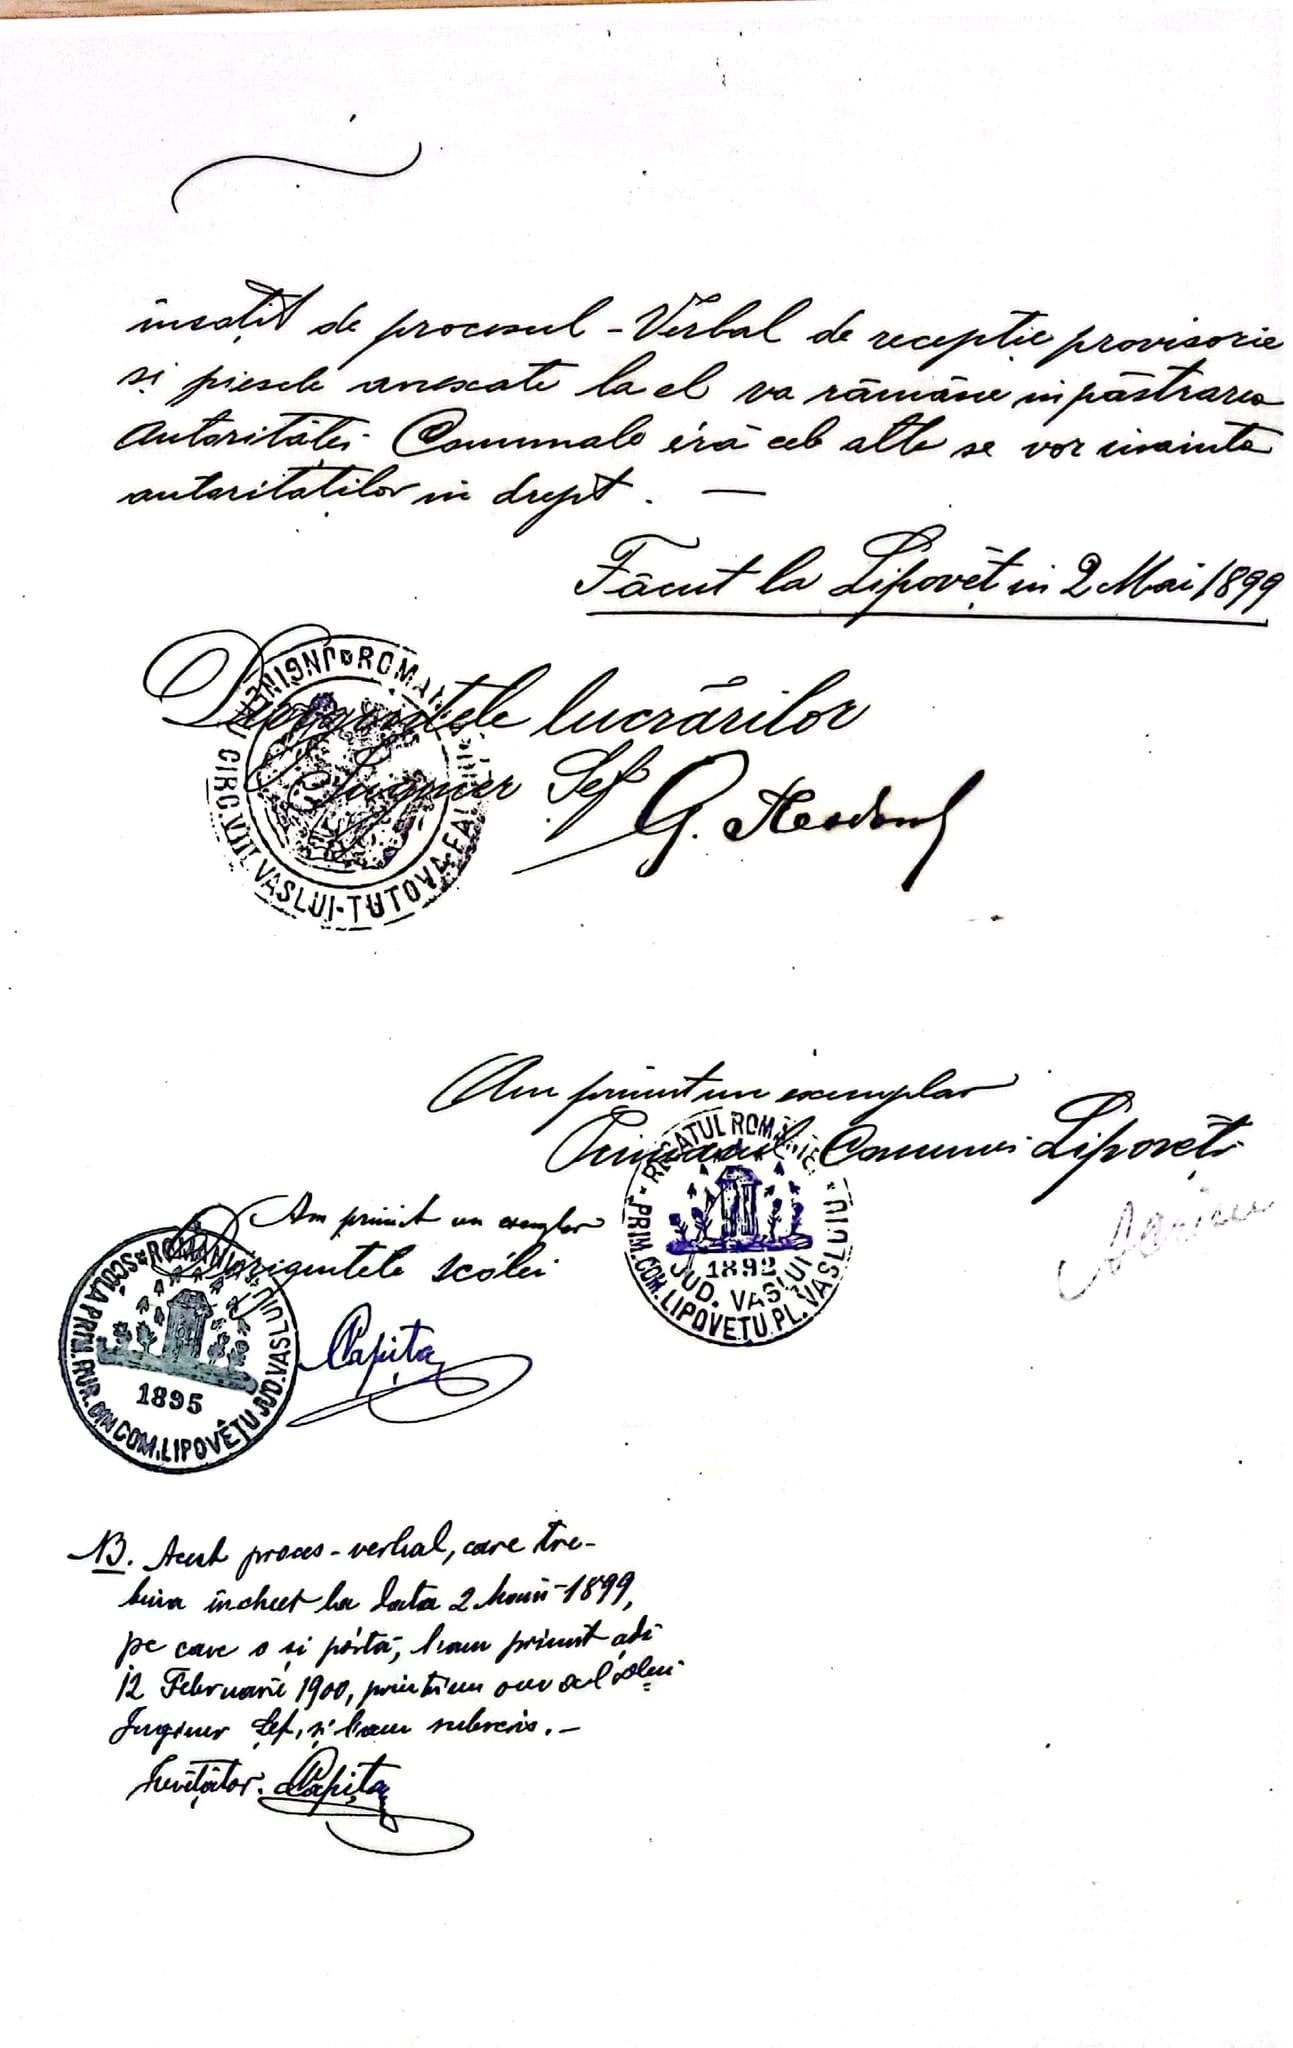 însoțit de procesul-Verbal de recepție provisorie
și piesele anexate la el va rămâne in păstrarea
Autorităței Comunale éră cele alte se vor inainta
autorităților in drept. —
Făcut la Lipovĕț in 2 Mai 1899
Diriguintele lucrărilor
Inginer Șef G.
ROMANIA
CIRC. VII VASLUI-TUTOVA-FAL
Am primit un exemplar
Primarul Comunei Lipovĕți
REGATUL ROMANIEI
PRIM. COM. LIPOVEȚU PL. VASLUIU
1892
JUD. VASLUI
Am primit un exemplar
Dirigintele scólei
Capița
ROMANIA
SCOLA PRIM. RUR. DIN COM. LIPOVÊȚU JUD. VASLUIU
1895
NB. Acest proces-verbal, care tre-
buia încheet la data 2 Maiŭ 1899,
pe care o și pórtă, l'am primit adĭ
12 Februarie 1900, printr'un al Dlui
Inginer Șef, și l'am subscris. —
Învĕțător. Capița